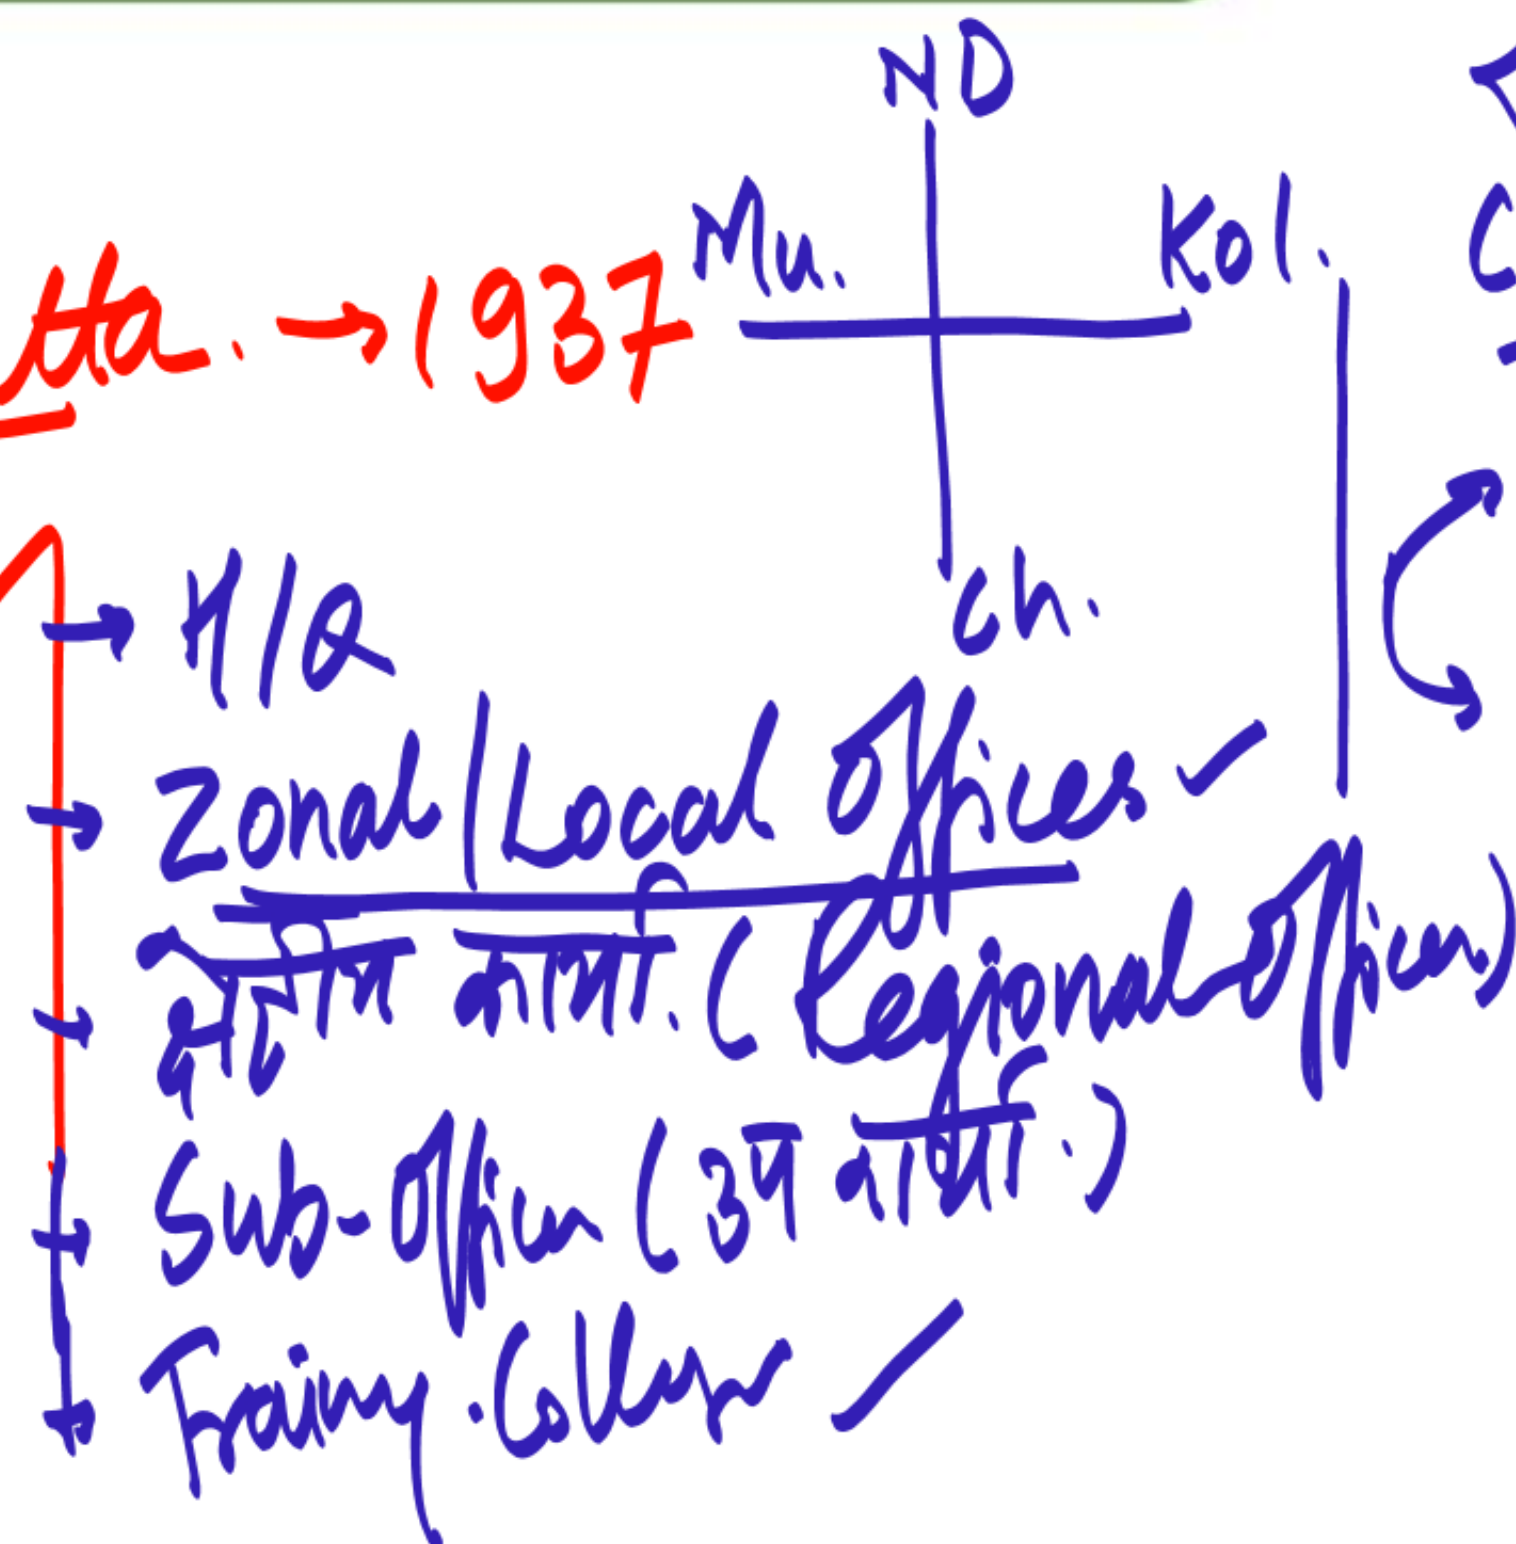 ND
Mu. Kol.
tta. → 1937
Ch.
→ H/Q
→ Zonal/Local Offices ✓
→ क्षेत्रीय कार्या. (Regional Offices)
→ Sub-Offices (उप कार्या.)
→ Training. Colleges ✓